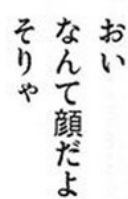 おい
なんて顔だよ
そりゃ